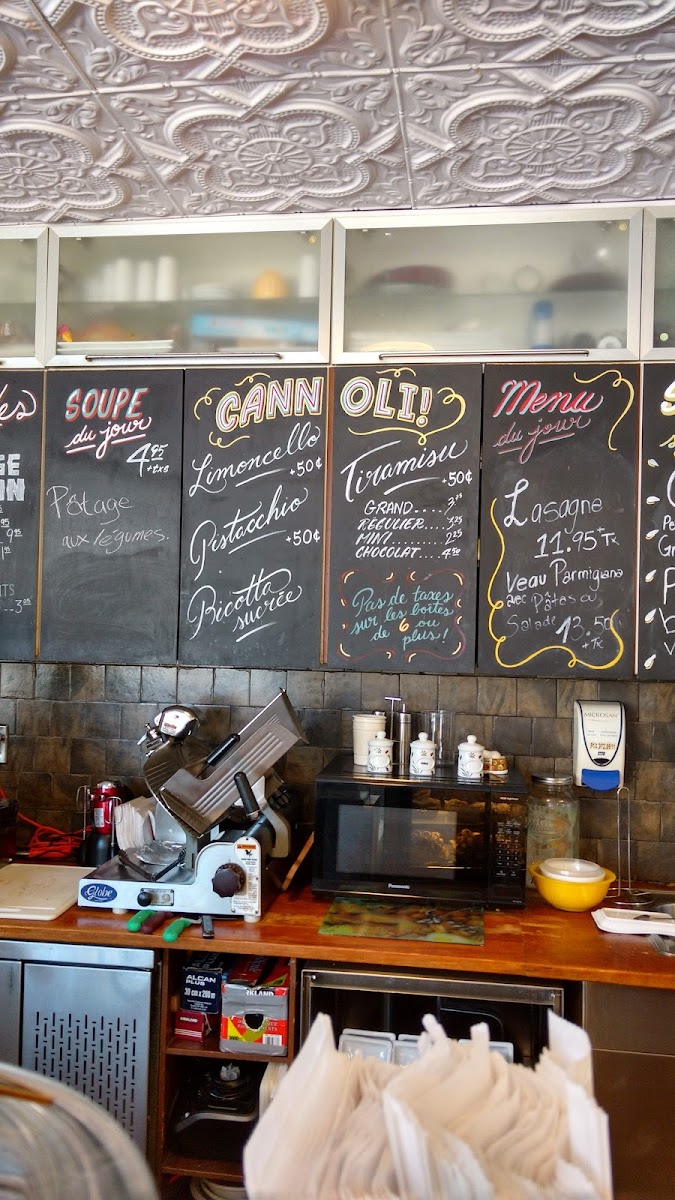 SOUPE
du jour
4.95
+txs
Pôtage
aux légumes.
CANNOLI!
Limoncello
+50¢
Pistacchio
+50¢
Ricotta
sucrée
Tiramisu
+50¢
GRAND
RÉGULIER
MINI
CHOCOLAT
Pas de taxes
sur les boîtes
de 6 ou
plus!
Menu
du jour
Lasagne
11.95+Tx
Veau Parmigiana
avec Pâtes ou
Salade 13.50
+Tx
MICROSAN
Globe
Panasonic
ALCAN
PLUS
30 cm x 200 m
KIRKLAND